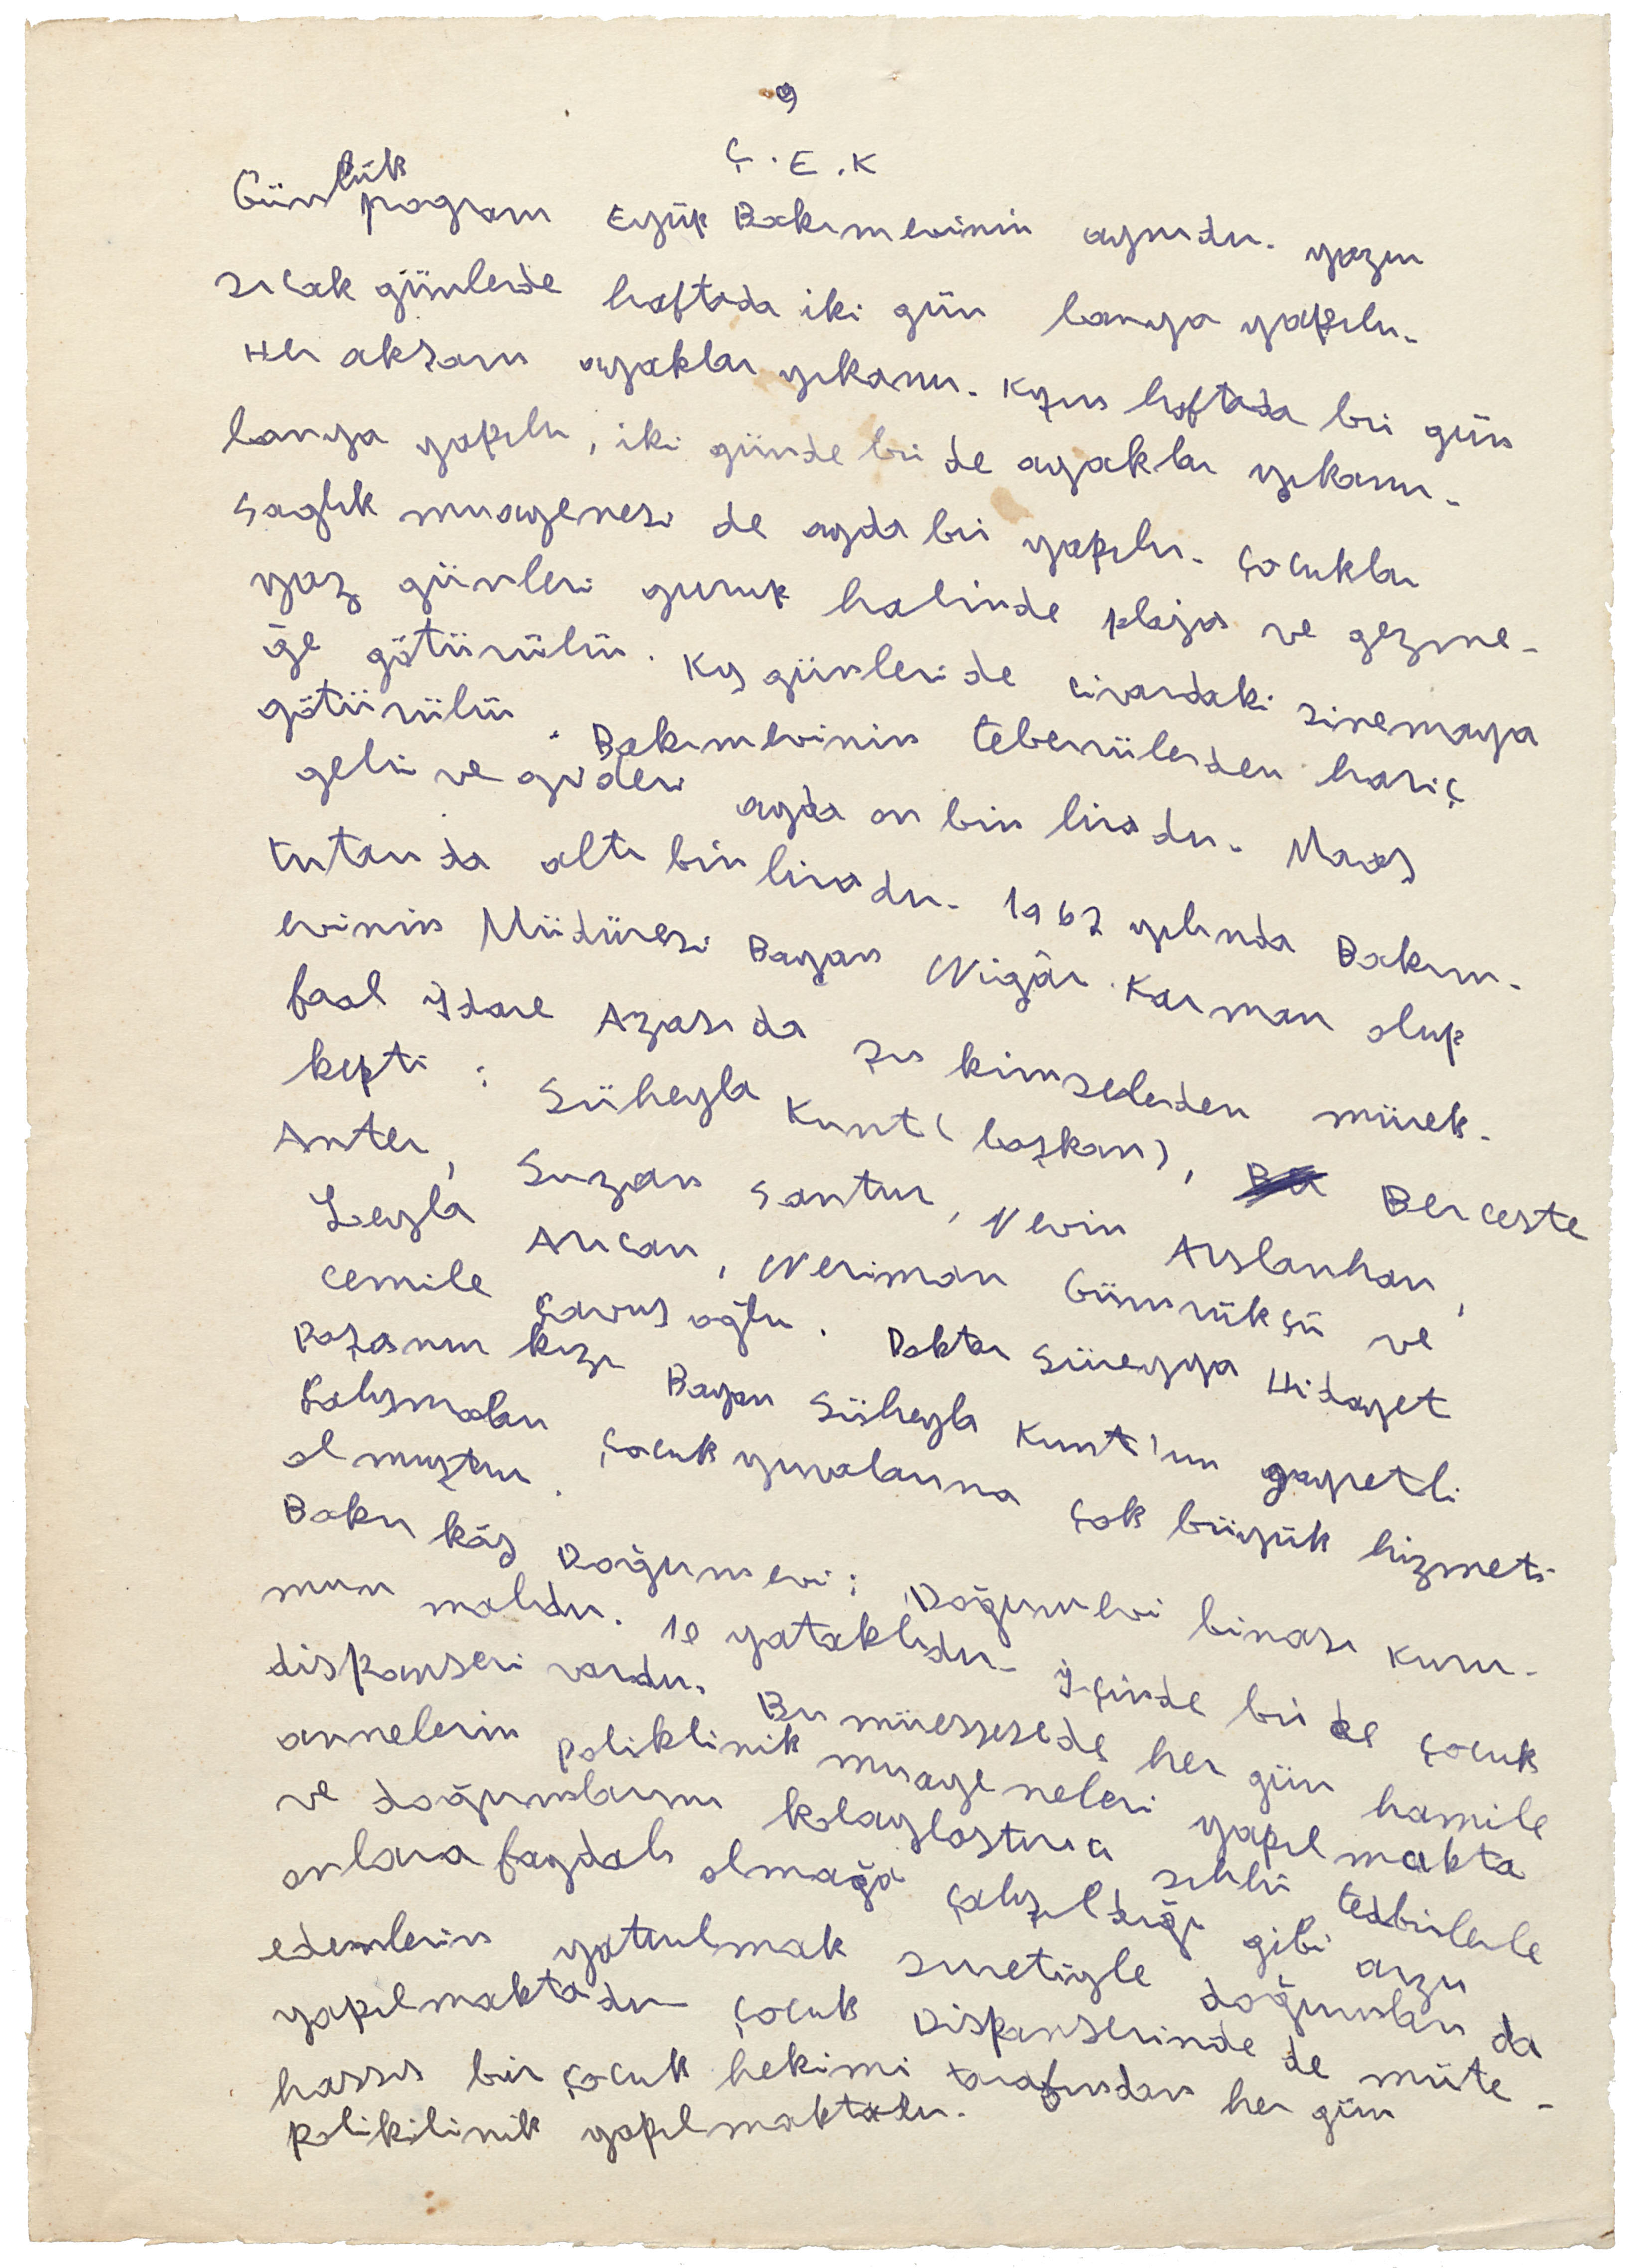 9
Ç.E.K
Günlük program Eyüp Bakımevinin aynıdır. yazın
sıcak günlerde haftada iki gün banyo yapılır.
Her akşam ayaklar yıkanır. Kışın haftada bir gün
banyo yapılır, iki günde bir de ayaklar yıkanır.
Sağlık muayenesi de ayda bir yapılır. Çocuklar
yaz günleri gurup halinde plaja ve gezme-
ğe götürülür. Kış günleride civardaki sinemaya
götürülür. Bakımevinin teberrülerden hariç
gelir ve gideri ayda on bin liradır. Maaş
tutarı da altı bin liradır. 1962 yılında Bakım-
evinin Müdüresi Bayan Nigâr Karman olup
faal İdare Azası da şu kimselerden mürek-
kepti : Süheyla Kunt (başkan), Berceste
Anter, Suzan Santur, Nevin Arslanhan,
Leyla Arıcan, Neriman Gümrükçü ve
Cemile Çavuşoğlu. Doktor Süreyya Hidayet
Paşanın kızı Bayan Süheyla Kunt'un gayretli
Çalışmaları çocuk yuvalarına çok büyük hizmeti
olmuştur.
Bakırköy Doğumevi : Doğumevi binası kuru-
mun malıdır. 10 yataklıdır. İçinde bir de çocuk
dispanseri vardır. Bu müessesede her gün hamile
annelerin poliklinik muayeneleri yapılmakta
ve doğumlarını kolaylaştırıcı sıhhi tedbirlerle
onlara faydalı olmağa çalışıldığı gibi arzu
edenlerin yatırılmak suretiyle doğumları da
yapılmaktadır. Çocuk Dispanserinde de müte-
hassıs bir çocuk hekimi tarafından her gün
polikilinik yapılmaktadır.